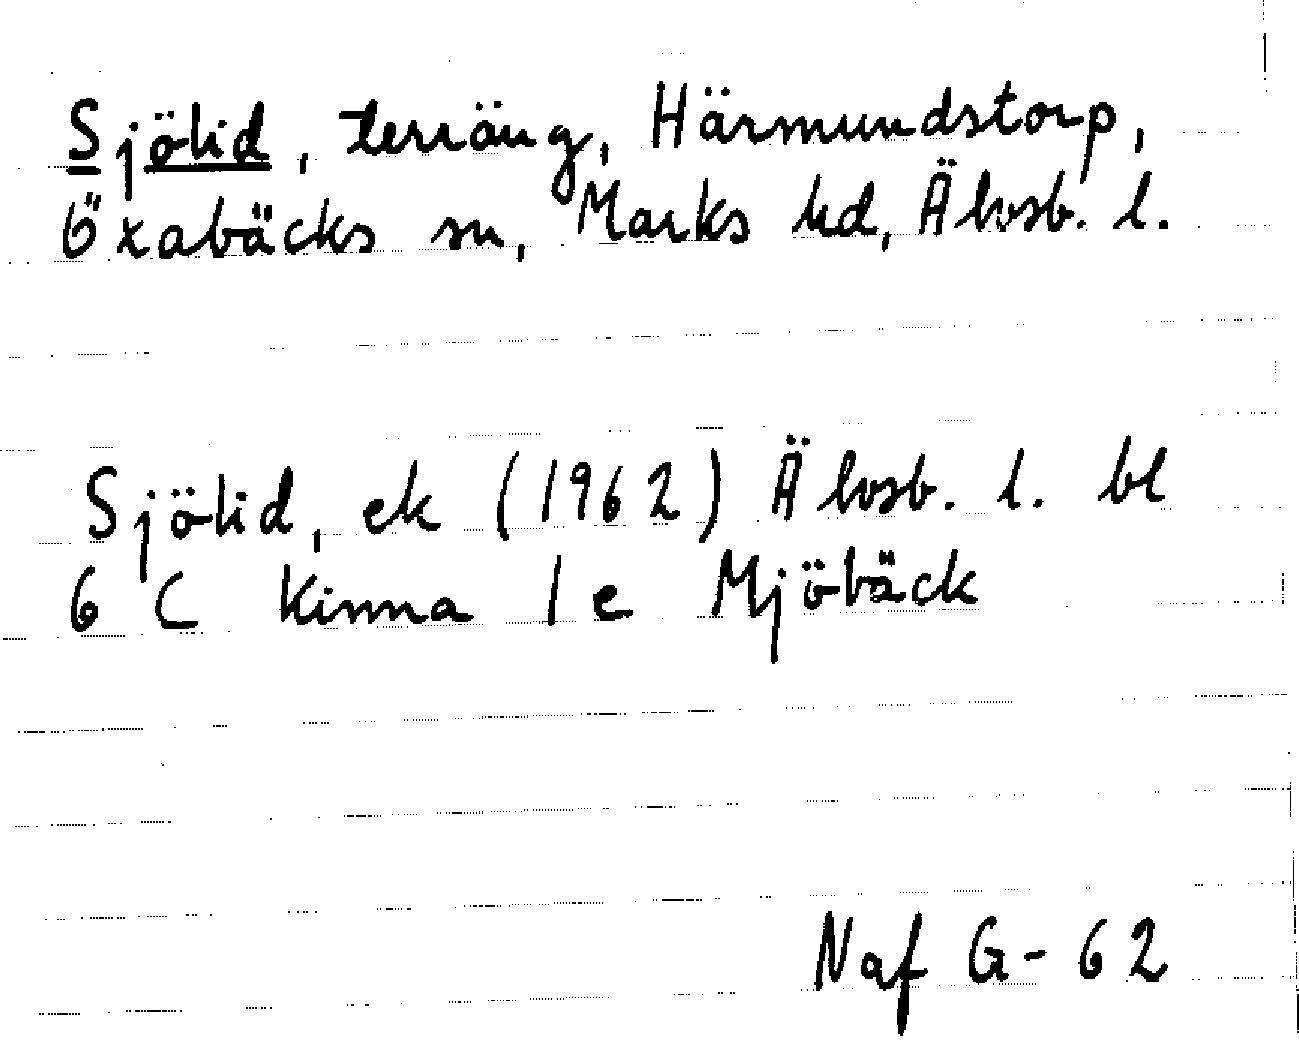 Sjölid, terräng, Härmundstorp,
Öxabäcks sn, Marks hd, Älvsb. l.
Sjölid, ek (1962) Älvsb. l. bl
6 C Kinna 1 e Mjöbäck
Naf G-62